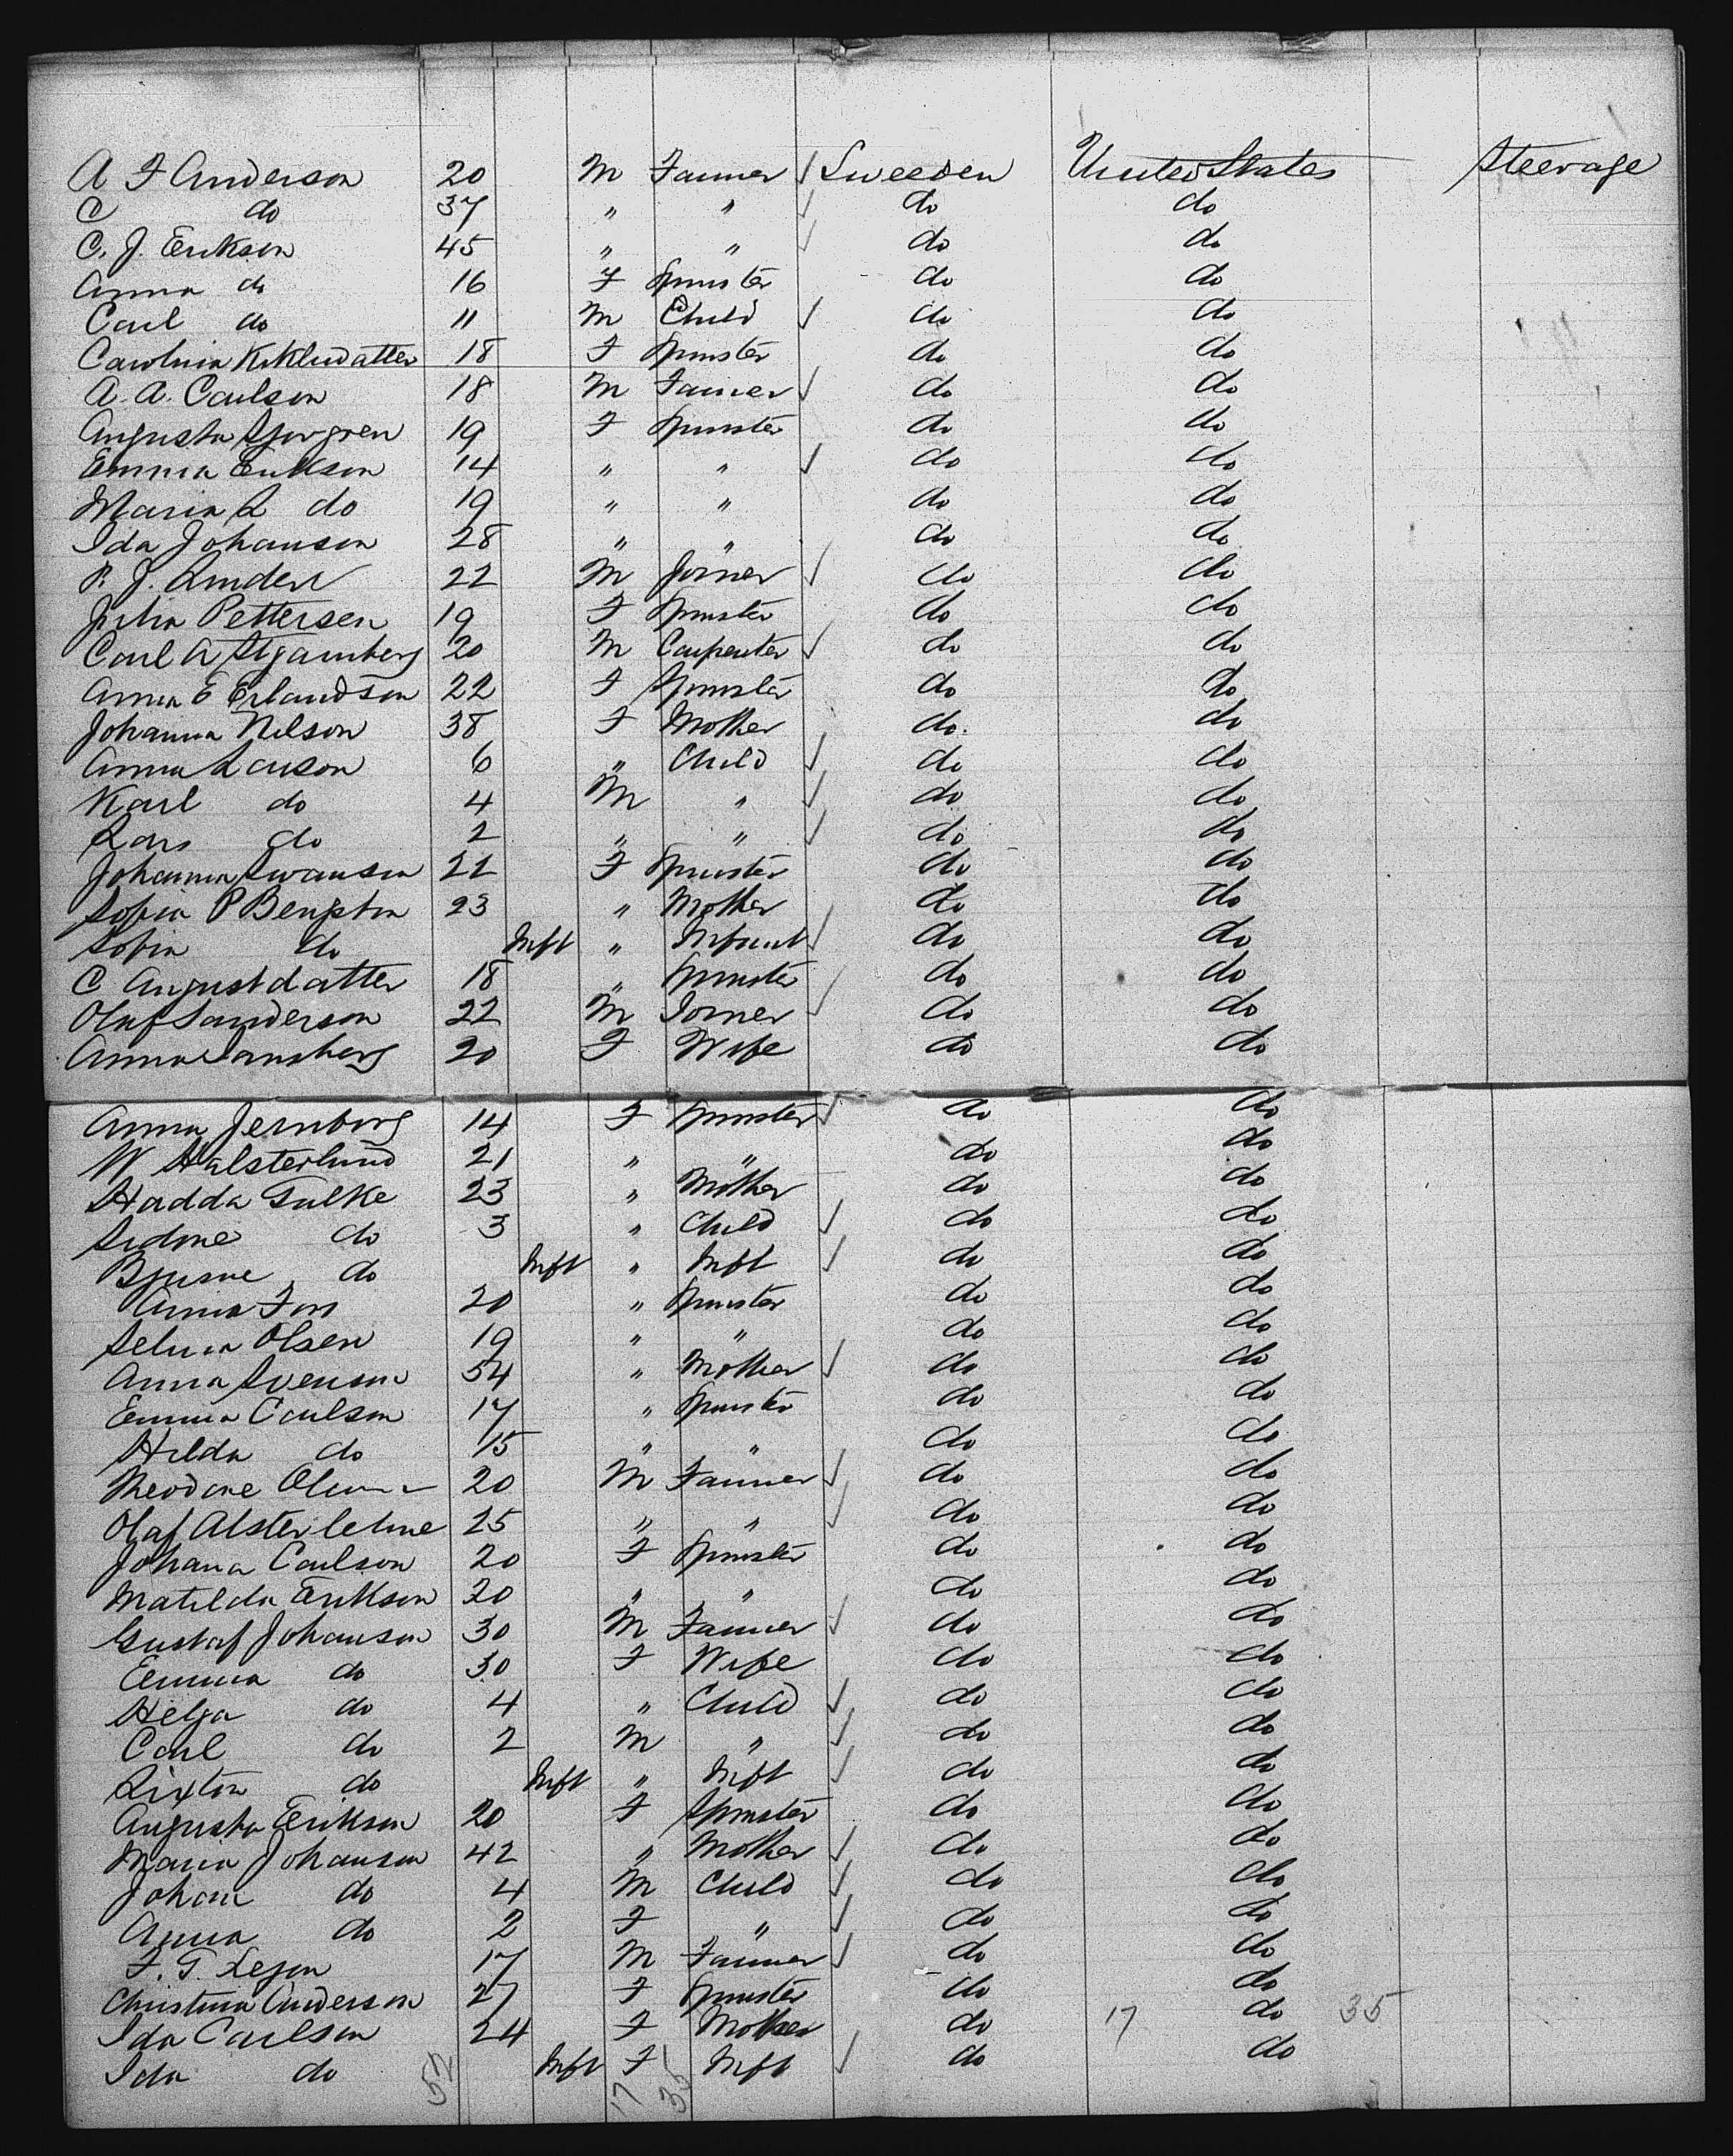 A F Anderson 20 M Farmer ✓ Sweeden United States Steerage
C do 37 " " ✓ do do
C. J. Erikson 45 " " ✓ do do
Anna do 16 F Spinster do do
Carl do 11 M Child ✓ do do
Carolina 18 F Spinster do do
A. A. Carlson 18 M Farmer ✓ do do
Augusta Sjorgren 19 F Spinster do do
Emma Erikson 14 " " ✓ do do
Maria L do 19 " " do do
Ida Johanson 28 " " do do
P. J. Linden 22 M Joiner ✓ do do
Julia Pettersen 19 F Spinster do do
Carl A 20 M Carpenter ✓ do do
Anna E Erlandson 22 F Spinster do do
Johanna Nelson 38 F Mother do do
Anna Larson 6 " Child ✓ do do
Karl do 4 M " ✓ do do
Lars do 2 " " ✓ do do
Johanna Swanson 22 F Spinster do do
Sofia P Bengston 23 " Mother do do
Sofia do Inft " Infant ✓ do do
C Augustdatter 18 " Spinster do do
Olaf Sanderson 22 M Joiner ✓ do do
Anna 20 F Wife do do
Anna Jernberg 14 F Spinster ✓ do do
W Halsterlund 21 " " do do
Hadda Gulke 23 " Mother do do
Sidone do 3 " Child ✓ do do
do Inft " Inft ✓ do do
Anna Fors 20 " Spinster do do
Selma Olsen 19 " " do do
Anna Svenson 54 " Mother ✓ do do
Emma Carlson 17 " Spinster do do
Hilda do 15 " " do do
Theodore 20 M Farmer ✓ do do
Olaf 25 " " ✓ do do
Johana Carlson 20 F Spinster do do
Matilda Erikson 20 " " do do
Gustaf Johanson 30 M Farmer ✓ do do
Emma do 30 F Wife do do
Helga do 4 " Child ✓ do do
Carl do 2 M " ✓ do do
Sixton do Inft " Inft ✓ do do
Augusta Erikson 20 F Spinster do do
Maria Johanson 42 " Mother ✓ do do
Johan do 4 M Child ✓ do do
Anna do 2 F " ✓ do do
F. G. 17 M Farmer ✓ do do
Christina Anderson 27 F Spinster do do
Ida Carlson 24 F Mother do 17 do 35
Ida do Inft F Inft ✓ do do
52 17 35